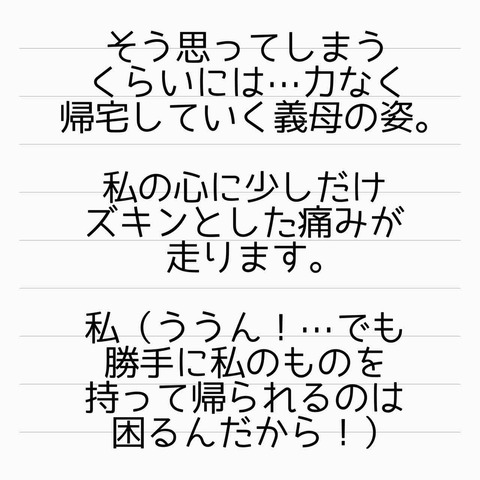 そう思ってしまう
くらいには…力なく
帰宅していく義母の姿。
私の心に少しだけ
ズキンとした痛みが
走ります。
私（ううん！…でも
勝手に私のものを
持って帰られるのは
困るんだから！）